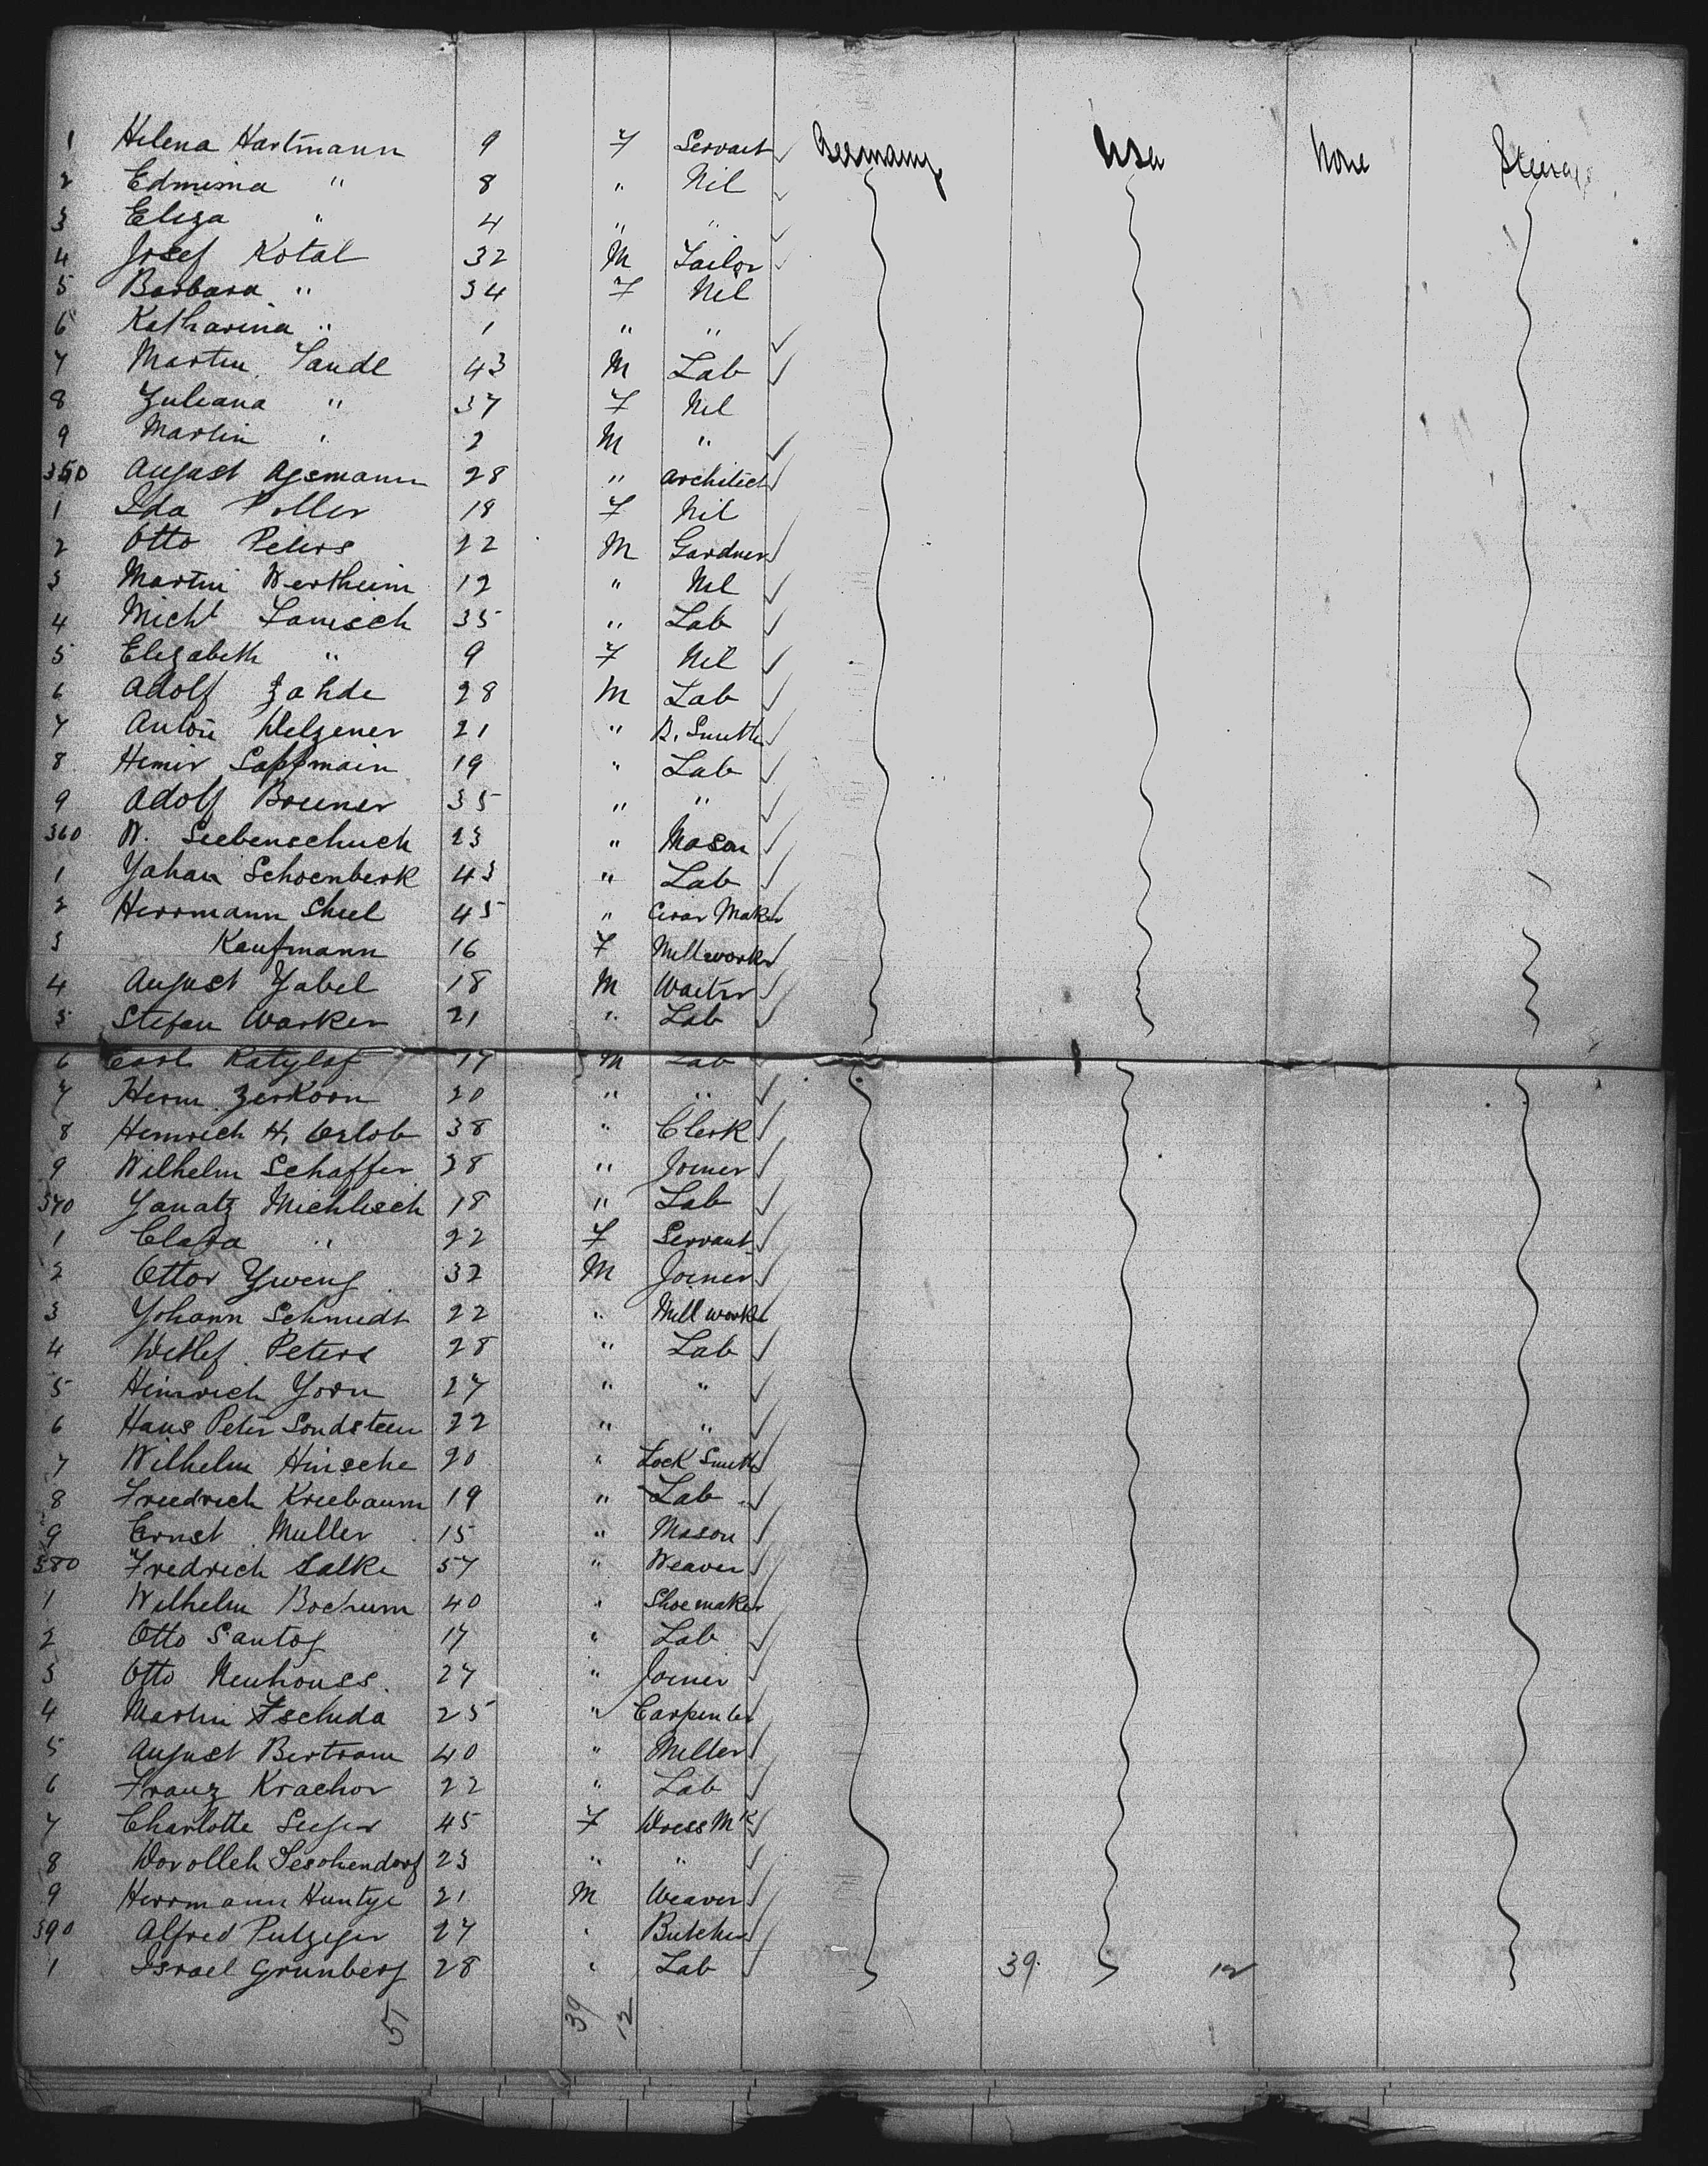 1 Helena Hartmann 9 F Servant Germany Usa None Steerage
2 Edmima " 8 " Nil
3 Eliza " 4 " "
4 Josef Kotal 32 M Tailor
5 Barbara " 34 F Nil
6 Katharina " 1 " "
7 Martin Sandl 43 M Lab
8 Juliana " 37 F Nil
9 Martin " 2 M "
350 August Agsmann 28 " Architect
1 Ida Poller 18 F Nil
2 Otto Peters 22 M Gardner
3 Martin Wertheim 12 " Nil
4 Michl Lanisch 35 " Lab
5 Elizabeth " 9 F Nil
6 Adolf Zahde 28 M Lab
7 Anton Welzener 21 " B. Smith
8 Heinir Saffmain 19 " Lab
9 Adolf Breener 35 " "
360 W. Seebenschuch 23 " Mason
1 Yohan Schoenberk 43 " Lab
2 Herrmann Sheel 45 " Cirar Maker
3 Kaufmann 16 F Millworkr
4 August Zabel 18 M Waiter
5 Stefan Warker 21 " Lab
6 Carl Ratylof 17 M Lab
7 Herm. Zerkorn 20 " "
8 Heinrich H. Orlob 38 " Clerk
9 Wilhelm Schaffer 28 " Joiner
370 Yanatz Michlisch 18 " Lab
1 Clara " 22 F Servant
2 Ottor Yweng 32 M Joiner
3 Yohann Schmidt 22 " Mill workr
4 Detlef Peters 28 " Lab
5 Heinrich Yorn 27 " "
6 Hans Peter Sondsteen 22 " "
7 Wilhelm Hinsche 20 " Lock Smith
8 Friedrich Kreebaum 19 " Lab
9 Ernst Muller 15 " Mason
380 Fredrich Salke 57 " Weaver
1 Wilhelm Bochum 40 " Shoemaker
2 Otto Santof 17 " Lab
3 Otto Neuhouss. 27 " Joiner
4 Martin Tschida 25 " Carpenter
5 August Bertram 40 " Miller
6 Franz Krachor 22 " Lab
7 Charlotte Seeger 45 F Dress Mk
8 Dorolleh Seschendorf 23 " "
9 Herrmann Kuntze 21 M Weaver
390 Alfred Putzger 27 " Butcher
1 Israel Grunberg 28 " Lab 39. 12
51 39 12